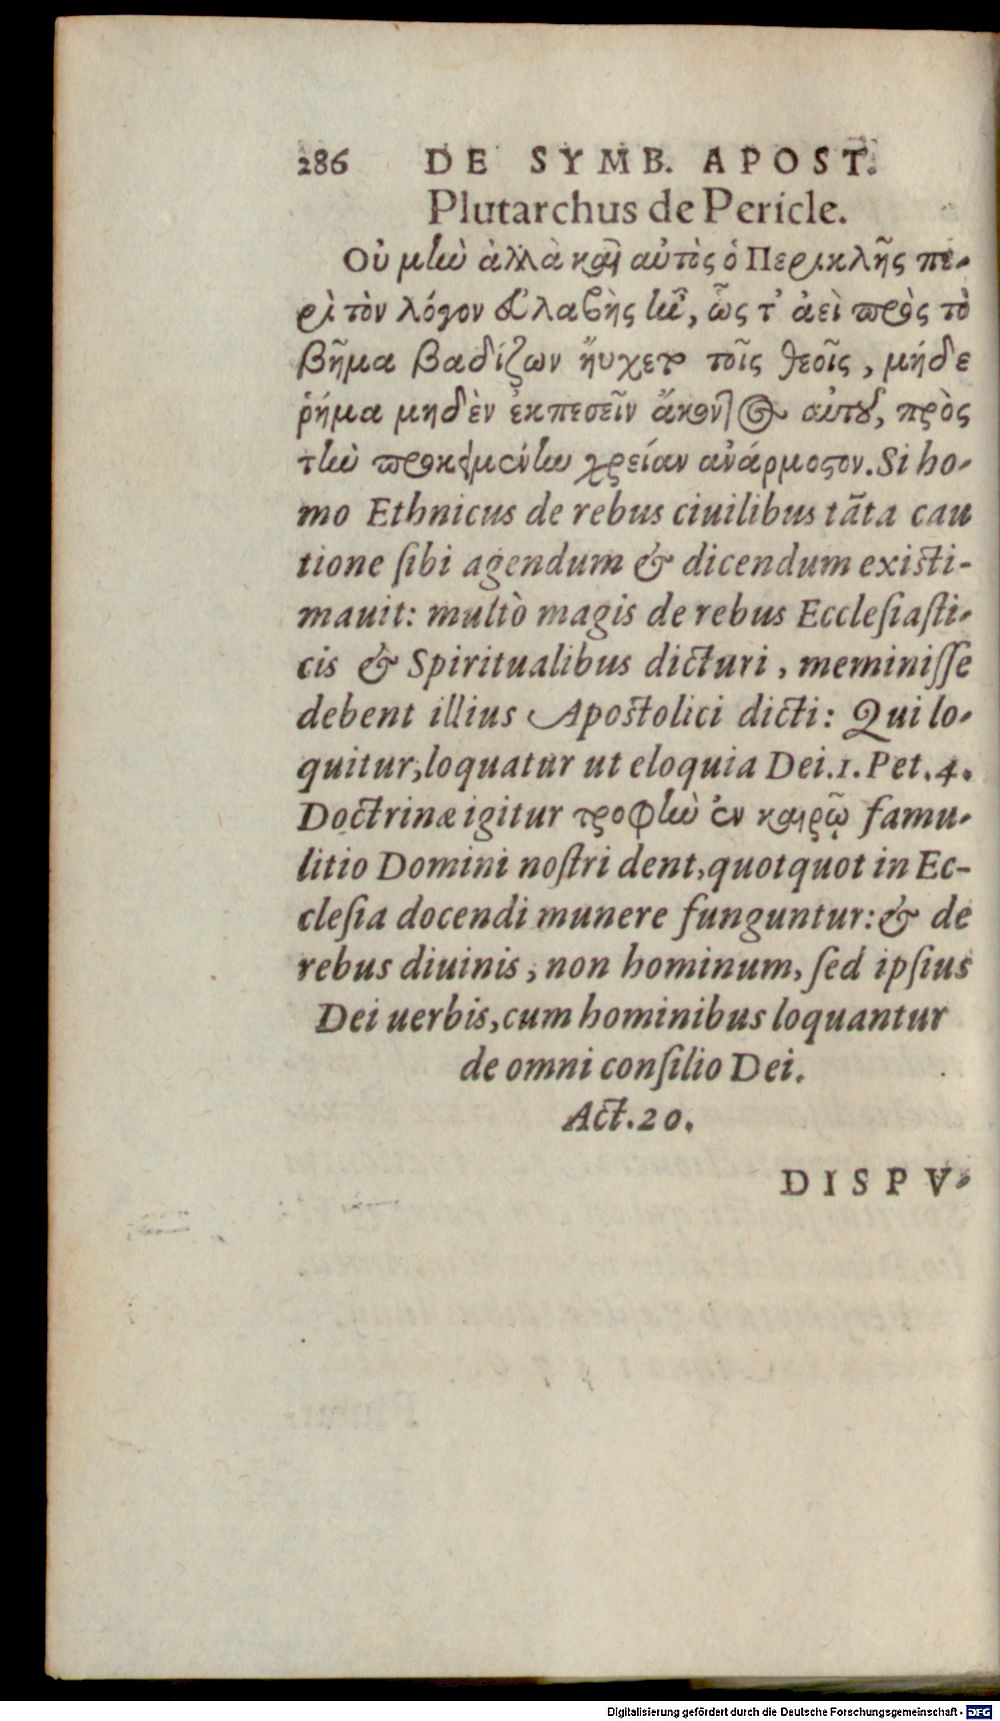 286 DE SYMB. APOST.
Plutarchus de Pericle.
Οὐ μὴν ἀλλὰ καὶ αὐτὸς ὁ Περικλῆς πε-
ρὶ τὸν λόγον εὐλαβὴς ἦν, ὥς τ' ἀεὶ πρὸς τὸ
βῆμα βαδίζων ηὔχετο τοῖς θεοῖς, μήδε
ῥήμα μηδὲν ἐκπεσεῖν ἄκοντος αὐτοῦ, πρὸς
τὴν προκειμένην χρείαν ἀνάρμοστον. Si ho-
mo Ethnicus de rebus ciuilibus tãta cau
tione ſibi agendum & dicendum existi-
mauit: multò magis de rebus Eccleſiaſti-
cis & Spiritualibus dicturi, meminiſſe
debent illius Apostolici dicti: Qui lo-
quitur, loquatur ut eloquia Dei. 1. Pet. 4.
Doctrinæ igitur τροφὴν ἐν καιρῷ famu-
litio Domini noſtri dent, quotquot in Ec-
cleſia docendi munere funguntur: & de
rebus diuinis, non hominum, ſed ipſius
Dei uerbis, cum hominibus loquantur
de omni conſilio Dei.
Act. 20.
DISPV-
Digitalisierung gefördert durch die Deutsche Forschungsgemeinschaft - DFG